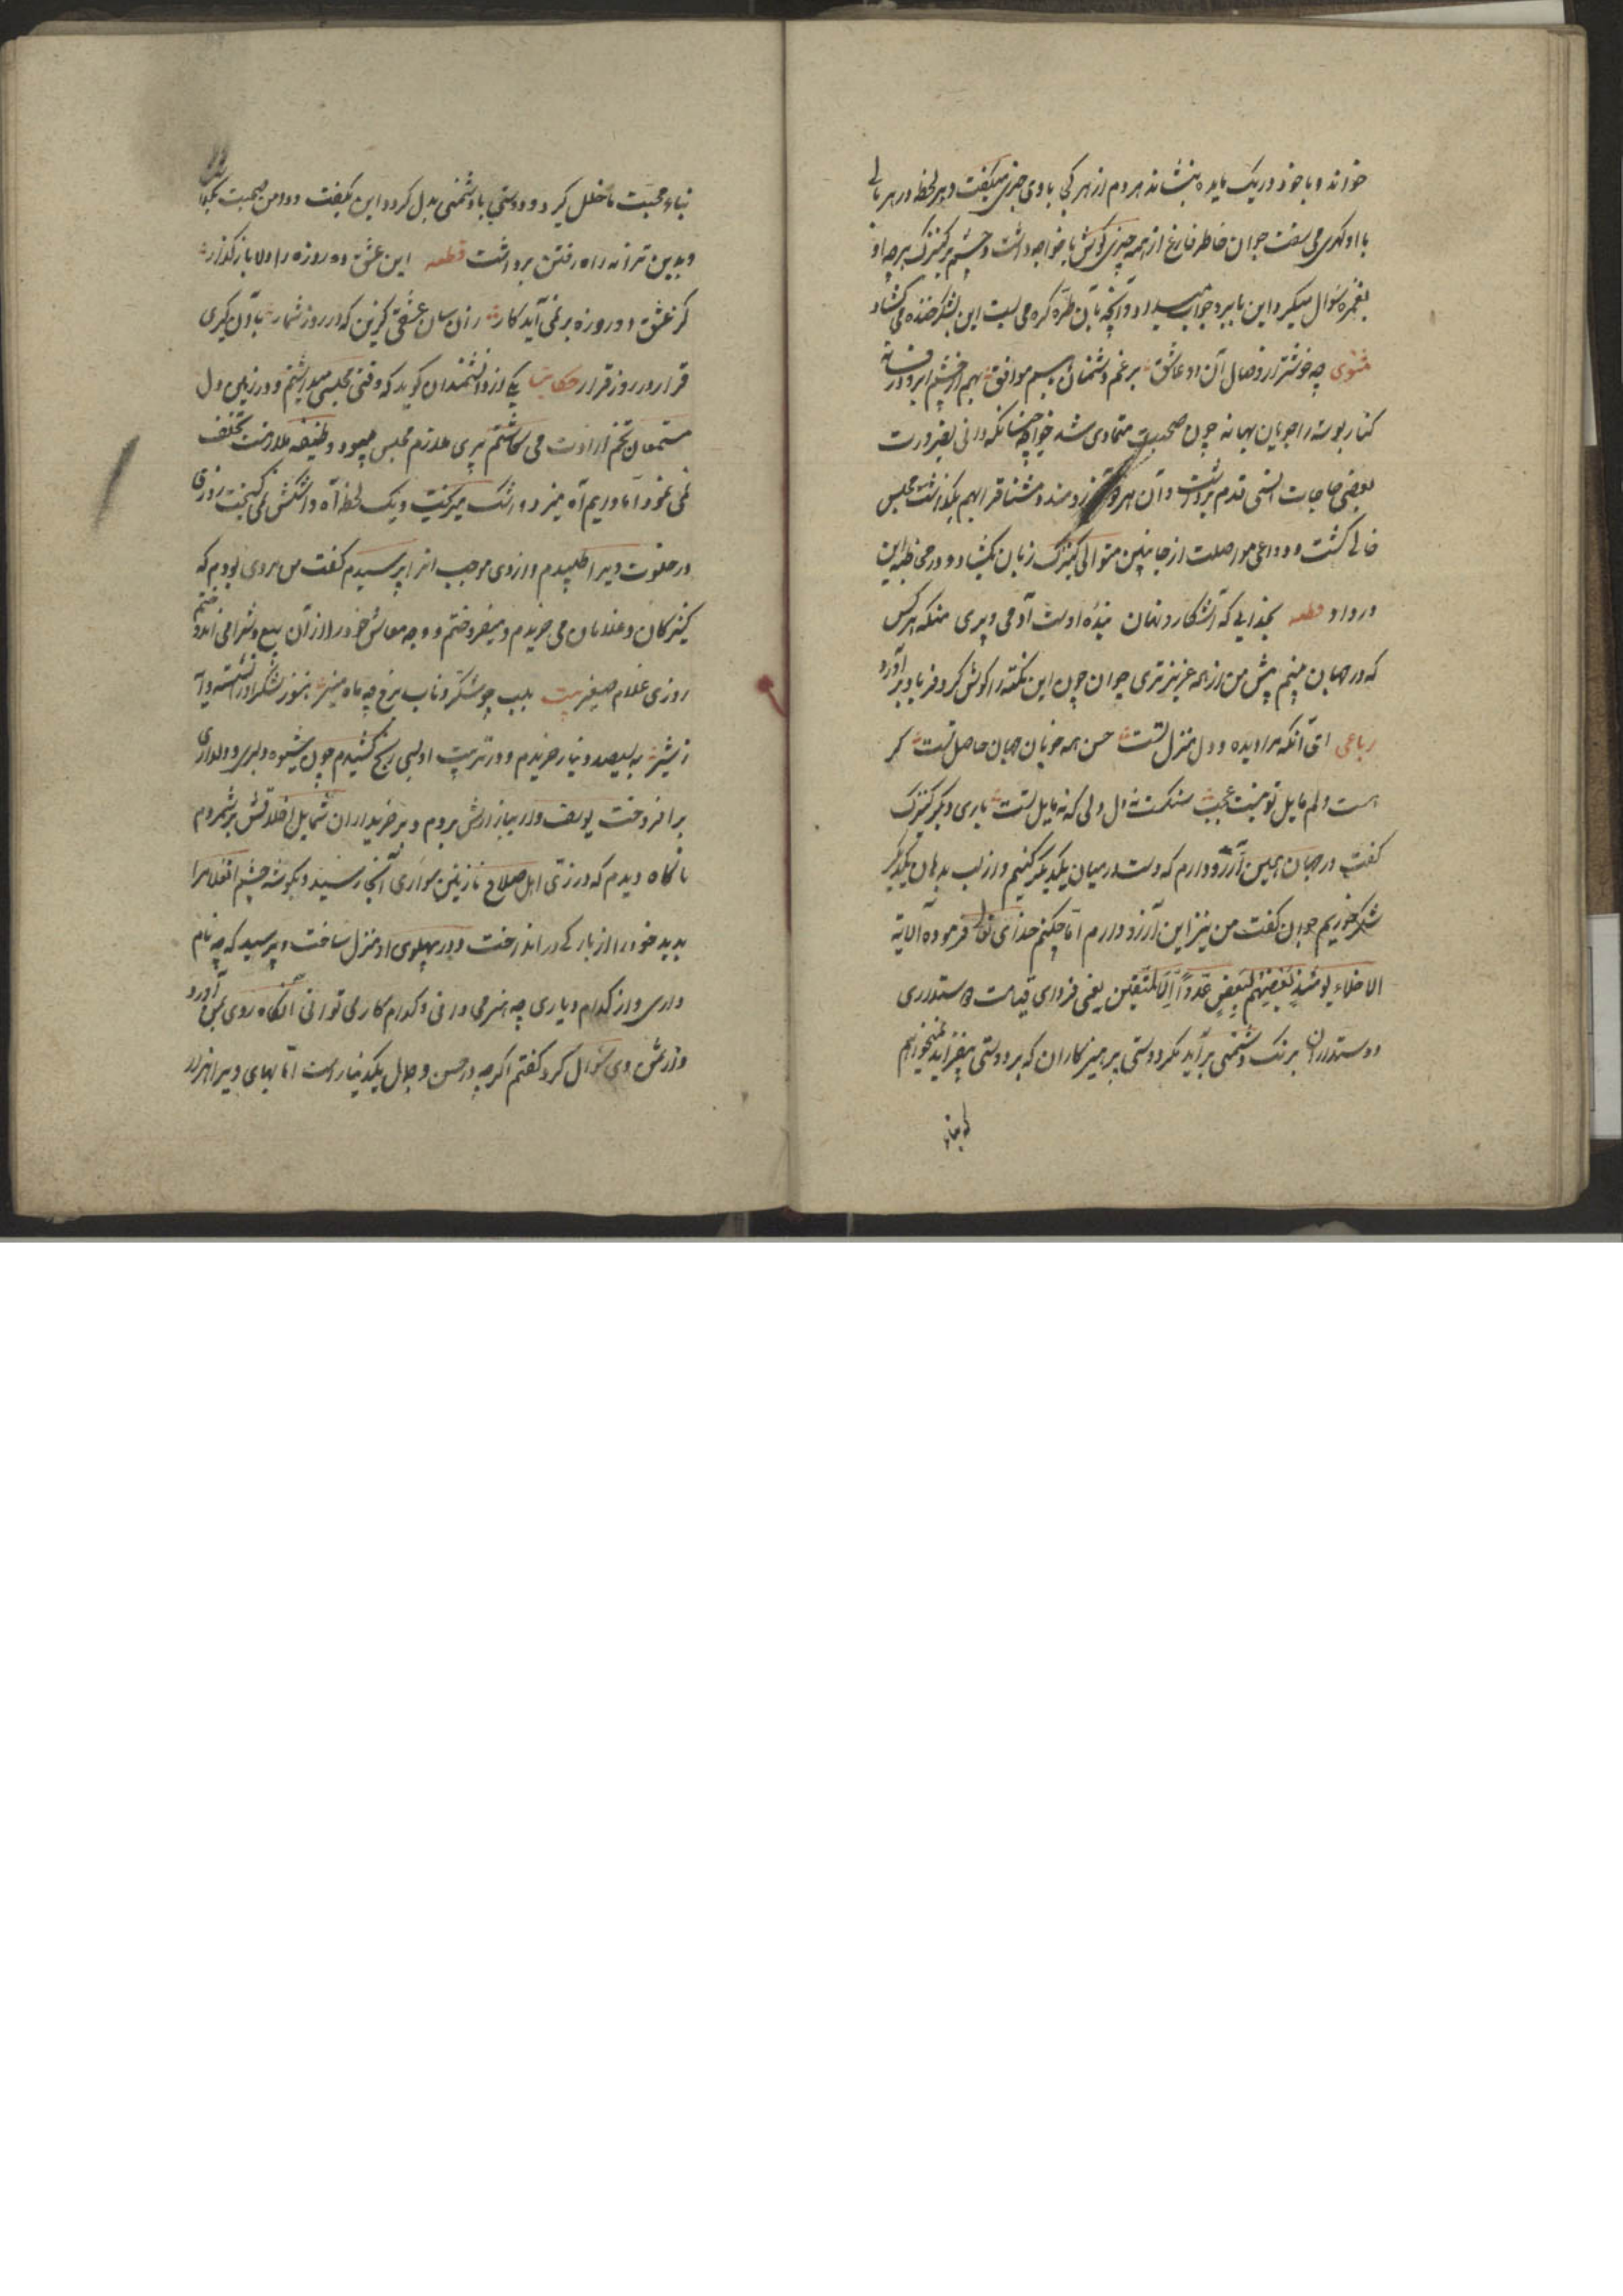 خواند و با خود در یک مایده بنشاند هر دم از هر کجا با وی چیزی میگفت و هر لحظه در هر بابی
با او گهری می سفت جوان خاطر فارغ از همه چیزی گوش با خواجه داشت و چشم بر کنیزک هر چه او
بغمزه سؤال میکرد این بابرو جواب میداد و آنچه آن بطره گره می بست این بشکر خنده می گشاد
مثنوی چه خوشتر از وصال آن دو عاشق برغم دشمنان با هم موافق بهم از چشم و ابرو در فسانه
کنار و بوسه را جویان بهانه چون صحبت متمادی شد خواجه چنانکه دانی بضرورت
بعضی حاجات انسی قدم برداشت و آن هر دو آرزومند و مشتاق را بهم بگذاشت مجلس
خالی گشت و دواعی مواصلت از جانبین متوالی کنیزک زبان بگشاد و در مخاطبه این
در داد قطعه بخدایی که آشکار و نهان بنده اوست آدمی و پری منکه هر کس
که در جهان بینم پیش من از همه عزیزتری جوان چون این نکته را گوش کرد فریاد برآورد
رباعی ای آنکه مرا دیده و دل منزل تست حسن همه خوبان جهان حاصل تست گر
هست دلم مایل تو نیست عجب سنگست نه دل دلی که نه مایل تست باری دیگر کنیزک
گفت در جهان همین آرزو دارم که دست در میان یکدیگر کنیم و از لب بدهان یکدیگر
شکر خوریم جوان گفت من نیز این آرزو دارم اما چکنم خدای تعالی فرموده الآیة
الاخلاء یومئذ بعضهم لبعض عدو الا المتقین یعنی فردای قیامت دوستداری
دوستداران برنگ دشمنی برآید مگر دوستی پرهیزکاران که بر دوستی بیفزاید نمیخواهم
که بنای
بناء محبت ما خلل گیرد و دوستی با دشمنی بدل گردد این بگفت و دامن صحبت بگذاشت
و بدین ترانه راه رفتن برداشت قطعه این عشق دو روزه را دلا باز گذار
کز عشق دو روزه بر نمی آید کار زان سان عشقی گزین که در روز شمار با آن گیری
قرار در روز قرار حکایت یکی از دانشمندان گوید که وقتی مجلسی میداشتم و در زمین دل
مستمعان تخم ارادت می کاشتم پیری ملازم مجلس میبود و وظیفه ملازمت تخلف
نمی نمود اما دایم آه میزد و اشک میریخت و یک لحظه آه و اشکش نمی گسیخت روزی
در خلوت ویرا طلبیدم و از وی موجب آنرا پرسیدم گفت من مردی بودم که
کنیزکان و غلامان می خریدم و میفروختم و وجه معاش خود را از آن بیع و شرا می اندوختم
روزی غلام صغیر بیت بلب چو شکر ناب برخ چو ماه منیر هنوز شکر او را نشسته دایه
ز شیر به سیصد دینار خریدم و در تربیت او بسی رنج کشیدم چون شیوه دلبری و دلداری
برافروخت یوسف وار ببازارش بردم و بر خریداران شمایل اخلاقش بر شمردم
ناگاه دیدم که در زی اهل صلاح نازنین سواری آنجا رسید و بگوشه چشم آن غلام را
بدید خود را از بارگی در انداخت و در پهلوی او منزل ساخت و پرسید که چه نام
داری و از کدام دیاری چه هنر می دانی و کدام کار می توانی آنگاه روی بمن آورد
و از ثمن وی سؤال کرد گفتم اگر چه در حسن و جمال یکدینارست اما بهای وی هزار